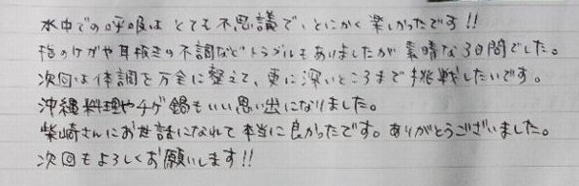 水中での呼吸はとても不思議で、とにかく楽しかったです!!
指のケガや耳抜きの不調などトラブルもありましたが素晴な3日間でした。
次回は体調を万全に整えて、更に深いところまで挑戦したいです。
沖縄料理やチゲ鍋もいい思い出になりました。
柴崎さんにお世話になれて本当に良かったです。ありがとうございました。
次回もよろしくお願いします!!